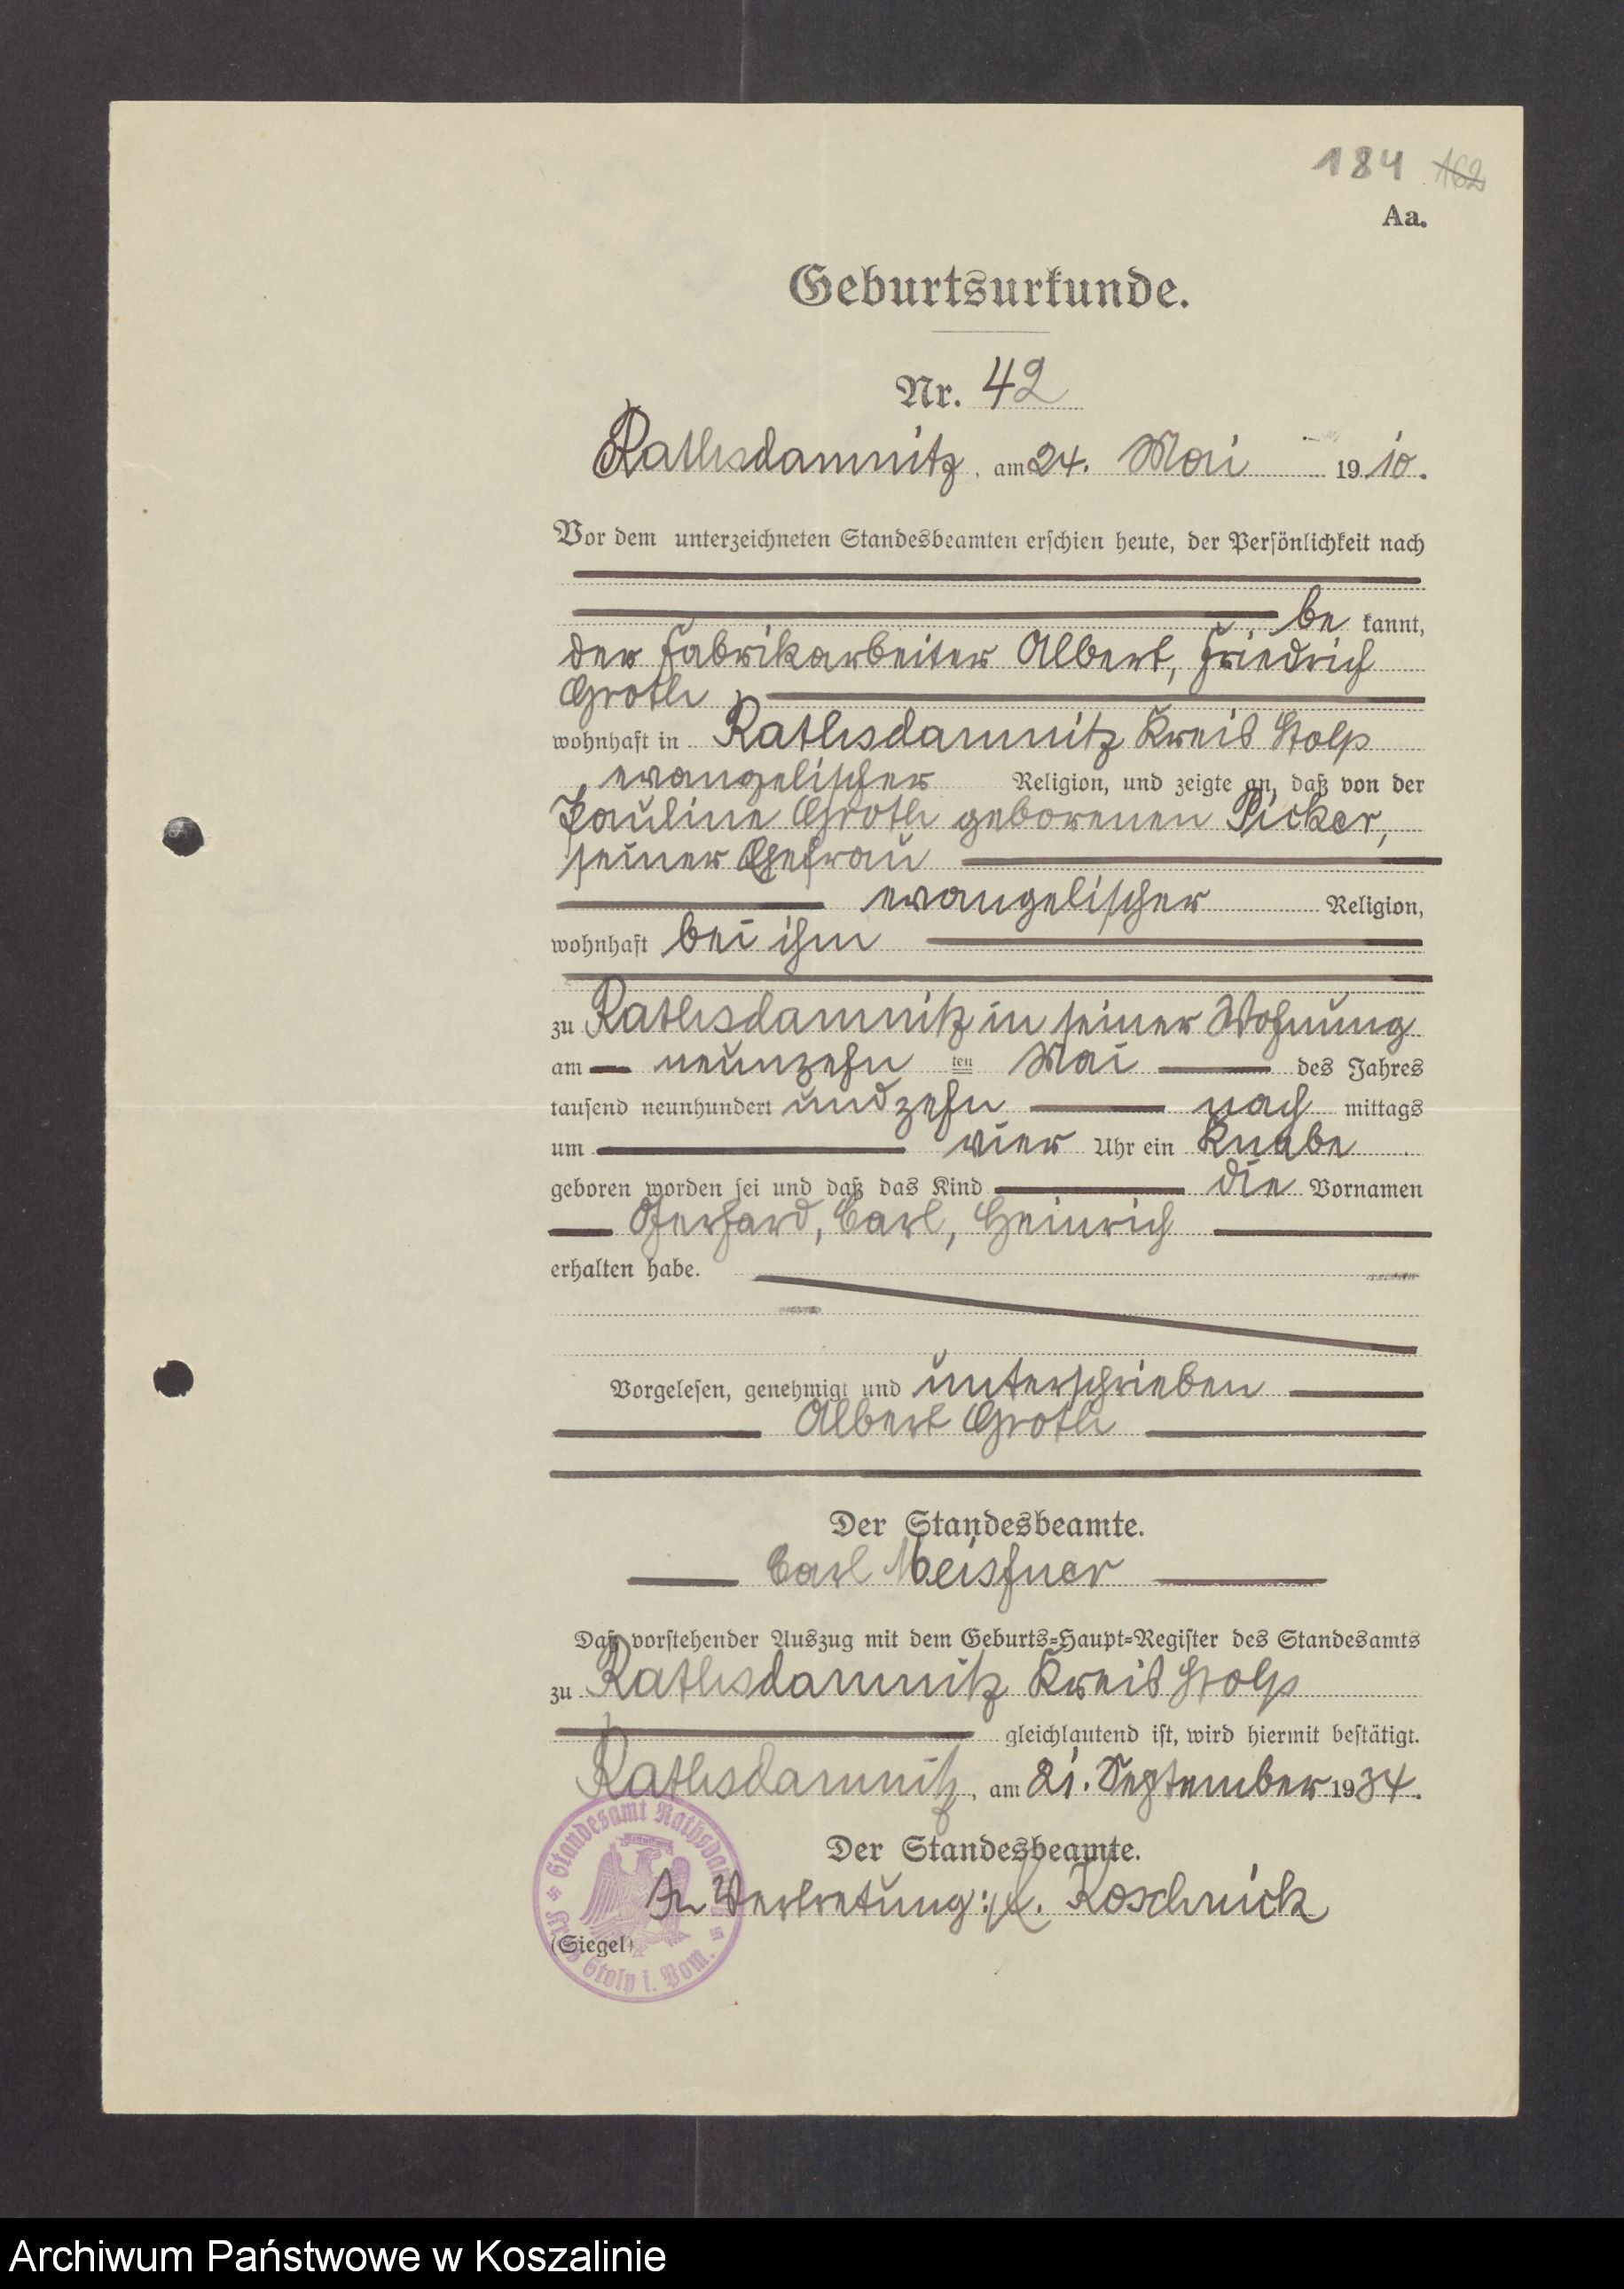 184 162
Aa.
Geburtsurkunde.
Nr. 42
Rathsdamnitz, am 24. Mai 1910.
Vor dem unterzeichneten Standesbeamten erschien heute, der Persönlichkeit nach
be kannt,
der Fabrikarbeiter Albert, Friedrich
Groth
wohnhaft in Rathsdamnitz Kreis Stolp
evangelischer Religion, und zeigte an, daß von der
Pauline Groth geborenen Picker,
seiner Ehefrau
evangelischer Religion,
wohnhaft bei ihm
zu Rathsdamnitz in seiner Wohnung
am neunzehn ten Mai des Jahres
tausend neunhundert und zehn nach mittags
um vier Uhr ein Knabe
geboren worden sei und daß das Kind die Vornamen
Gerhard, Carl, Heinrich
erhalten habe.
Vorgelesen, genehmigt und unterschrieben
Albert Groth
Der Standesbeamte.
Carl Meißner
Daß vorstehender Auszug mit dem Geburts-Haupt-Register des Standesamts
zu Rathsdamnitz Kreis Stolp
gleichlautend ist, wird hiermit bestätigt.
Rathsdamnitz, am 21. September 1934.
Der Standesbeamte.
In Vertretung: Koschnick
(Siegel)
Standesamt Rathsdamnitz
Kreis Stolp i. Pom.
Archiwum Państwowe w Koszalinie